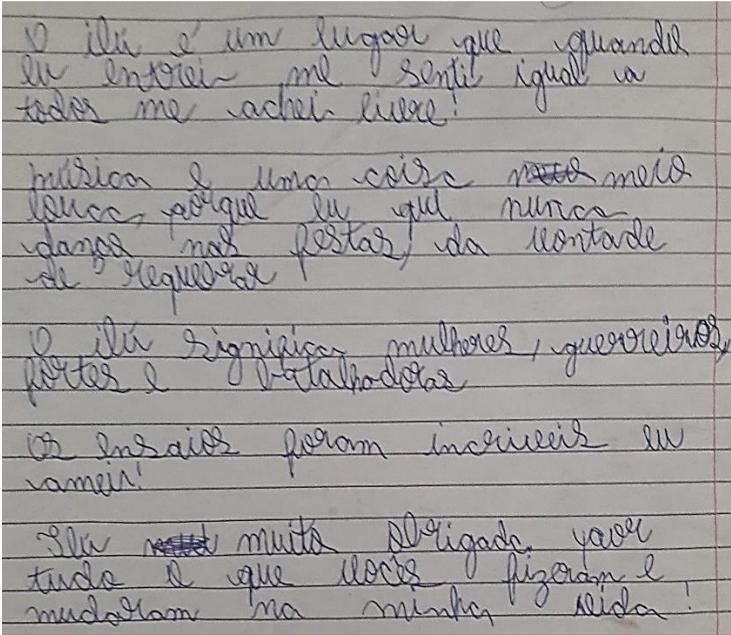 O ilú é um lugar que quando
eu entrei me senti igual a
todos me achei livre!
música é uma coisa meio
louca, porque eu que nunca
danço nas festas, da vontade
de requebrar
O ilú significa mulheres, guerreiras,
fortes e batalhadoras
os ensaios foram incriveis eu
amei!
Ilú muito obrigada, por
tudo o que vocês fizeram e
mudaram na minha vida!